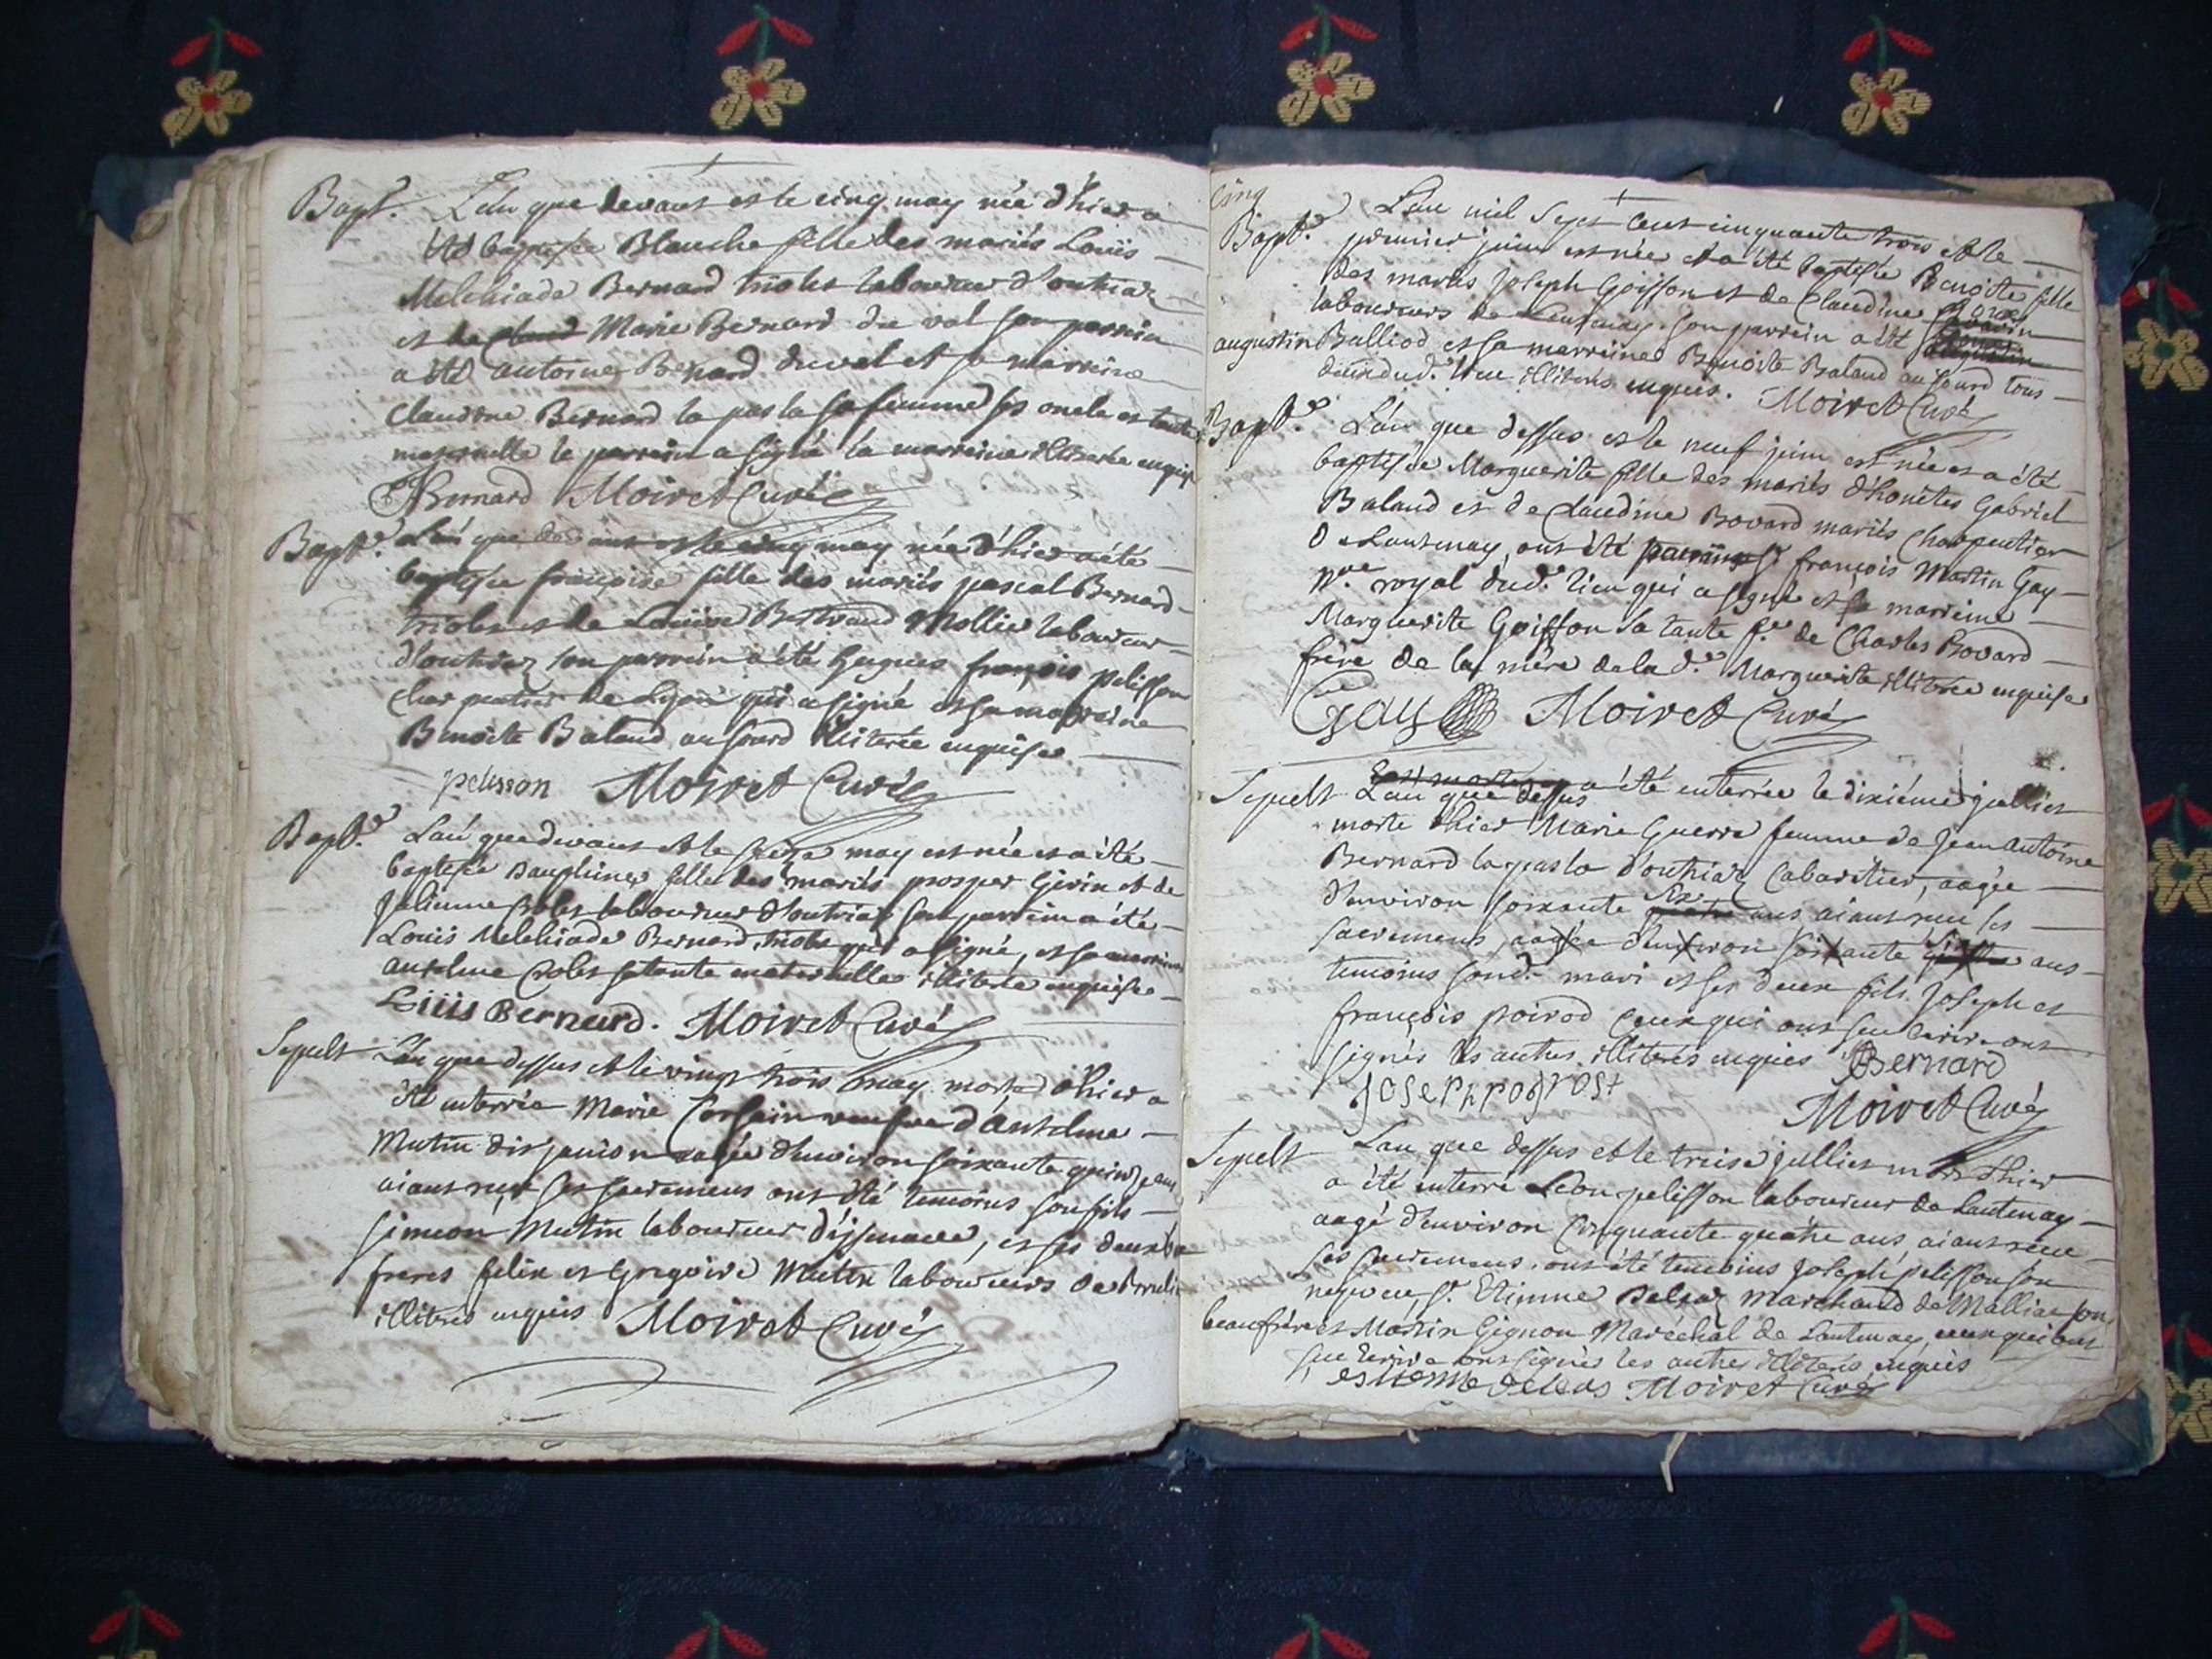 Bapt.e L'an que devant et le cinq may née d'hier a
été baptisée Blanche fille des mariés Loüis
Melchiade Bernard triolet laboureur d'outriaz
et de Marie Bernard du val son parrein
a été antoine Bernard duval et sa marreine
Claudine Bernard la pas la sa femme ses oncle et tante
maternelle le parrein a signé la marreine illiterée enquise
Bernard Moiret Curé
Bapt.e L'an que devant et le cinq may née d'hier a été
baptisée françoise fille des mariés pascal Bernard
triolet et de Loüise Bertrand Mollie laboureur
d'outriaz son parrein a été Hugues françois pelisson
charpentier de Lyon qui a signé et sa marreine
Benoite Balaud au sourd illiterée enquise
pelisson Moiret Curé
Bapt.e L'an que devant et le seize may est née et a été
baptisée Dauphine fille des mariés prosper Girin et de
Julienne laboureur d'outriaz son parrein a été
Louis Melchiade Bernard triolet qui a signé, et sa marreine
anselme sa tante maternelle illiterée enquise
Loüis Bernard. Moiret Curé
Sepult L'an que dessus et le vingt trois may morte d'hier a
été enterrée Marie veufve d'Anselme
Mutin dit aagée d'environ soixante quinze ans
aiant reçu ses sacremens ont été temoins son fils
simeon Mutin laboureur d'issenave, et ses deux
freres felix et Gregoire Mutin laboureurs de
illiterés enquis Moiret Curé
cinq
L'an mil Sept cent cinquante trois et le
Bapt.e premier juin est née et a été baptisée Benoite fille
des mariés Joseph Goiffon et de Claudine
laboureurs de Lantenay. son parrein a été
augustin Balliod et sa marreine Benoite Balaud au sourd tous
deux dud. lieu illiterés enquis. Moiret Curé
Bapt.e L'an que dessus et le neuf juin est née et a été
baptisée Marguerite fille des mariés d'honêtes Gabriel
Balaud et de Claudine Bovard mariés charpentier
De Lantenay, ont été parreins s.r françois Martin Gay
n.re royal dud. lieu qui a signé et sa marreine
Marguerite Goiffon sa tante f.e de Charles Bovard
frère de la mère de la d.e Marguerite illiterée enquise
Gay Moiret Curé
Sepult L'an que dessus a été enterrée le dixiéme juillet
morte d'hier Marie Guerre femme de Jean Antoine
Bernard la pas la d'outriaz Cabaretier, aagée
d'environ soixante six ans aiant reçu ses
sacremens, aagée d'environ soixante ans
temoins sond. mari et ses deux fils Joseph et
françois poirod ceux qui ont sçu écrire ont
signés les autres illiterés enquis Bernard
Joseph
Moiret Curé
Sepult L'an que dessus et le treise juillet mort d'hier
a été enterré Léon pelisson laboureur de Lantenay
aagé d'environ Cinquante quatre ans aiant reçu
ses sacremens, ont été temoins Joseph pelisson son
neveu, s.r Etienne Deleaz Marchand de Malliac son
beaufrère et Martin Gignon Maréchal de Lantenay, ceux qui ont
sçu écrire ont signés les autres illiterés enquis
estienne deleas Moiret Curé